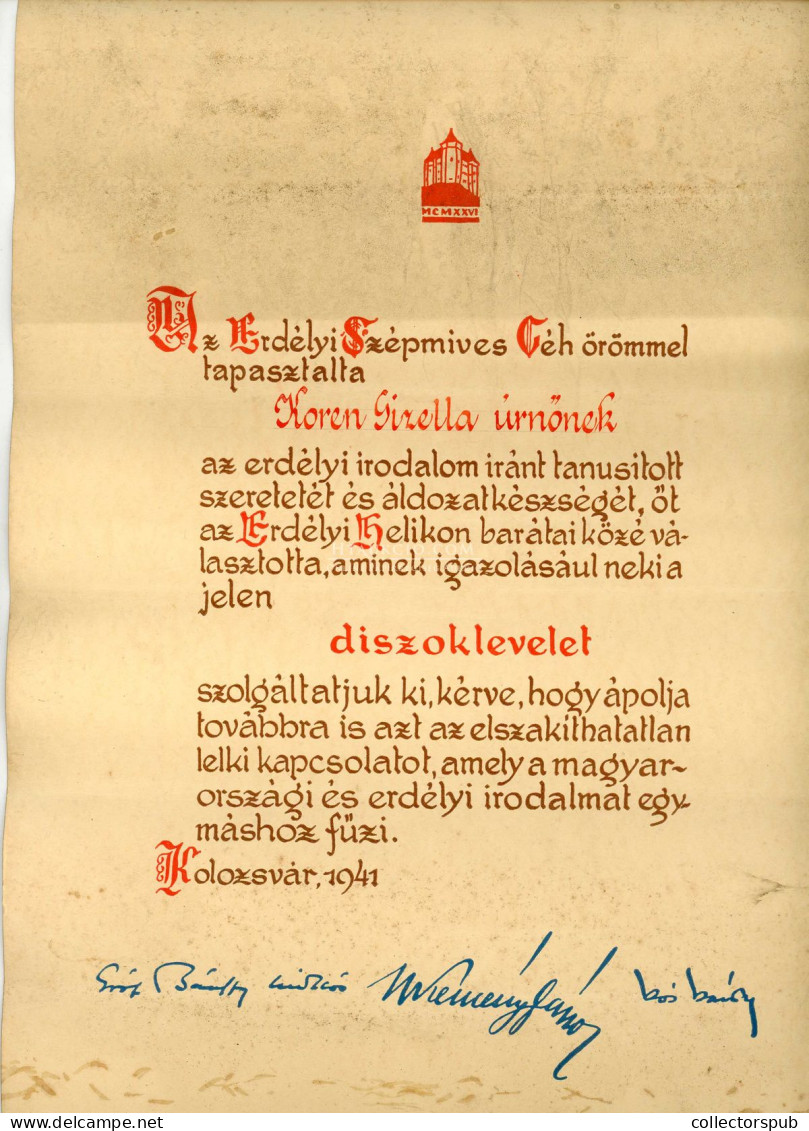 MCMXXVI
Az Erdélyi Szépmives Céh örömmel
tapasztalta
Koren Gizella úrnőnek
az erdélyi irodalom iránt tanusitott
szeretetét és áldozatkészségét, őt
az Erdélyi Helikon barátai közé vá-
lasztotta, aminek igazolásául neki a
jelen
diszoklevelet
szolgáltatjuk ki, kérve, hogy ápolja
továbbra is azt az elszakithatatlan
lelki kapcsolatot, amely a magyar-
országi és erdélyi irodalmat egy-
máshoz fűzi.
Kolozsvár, 1941
Gróf Bánffy Miklós Kemény János Kós Károly
delcampe.net
collectorspub